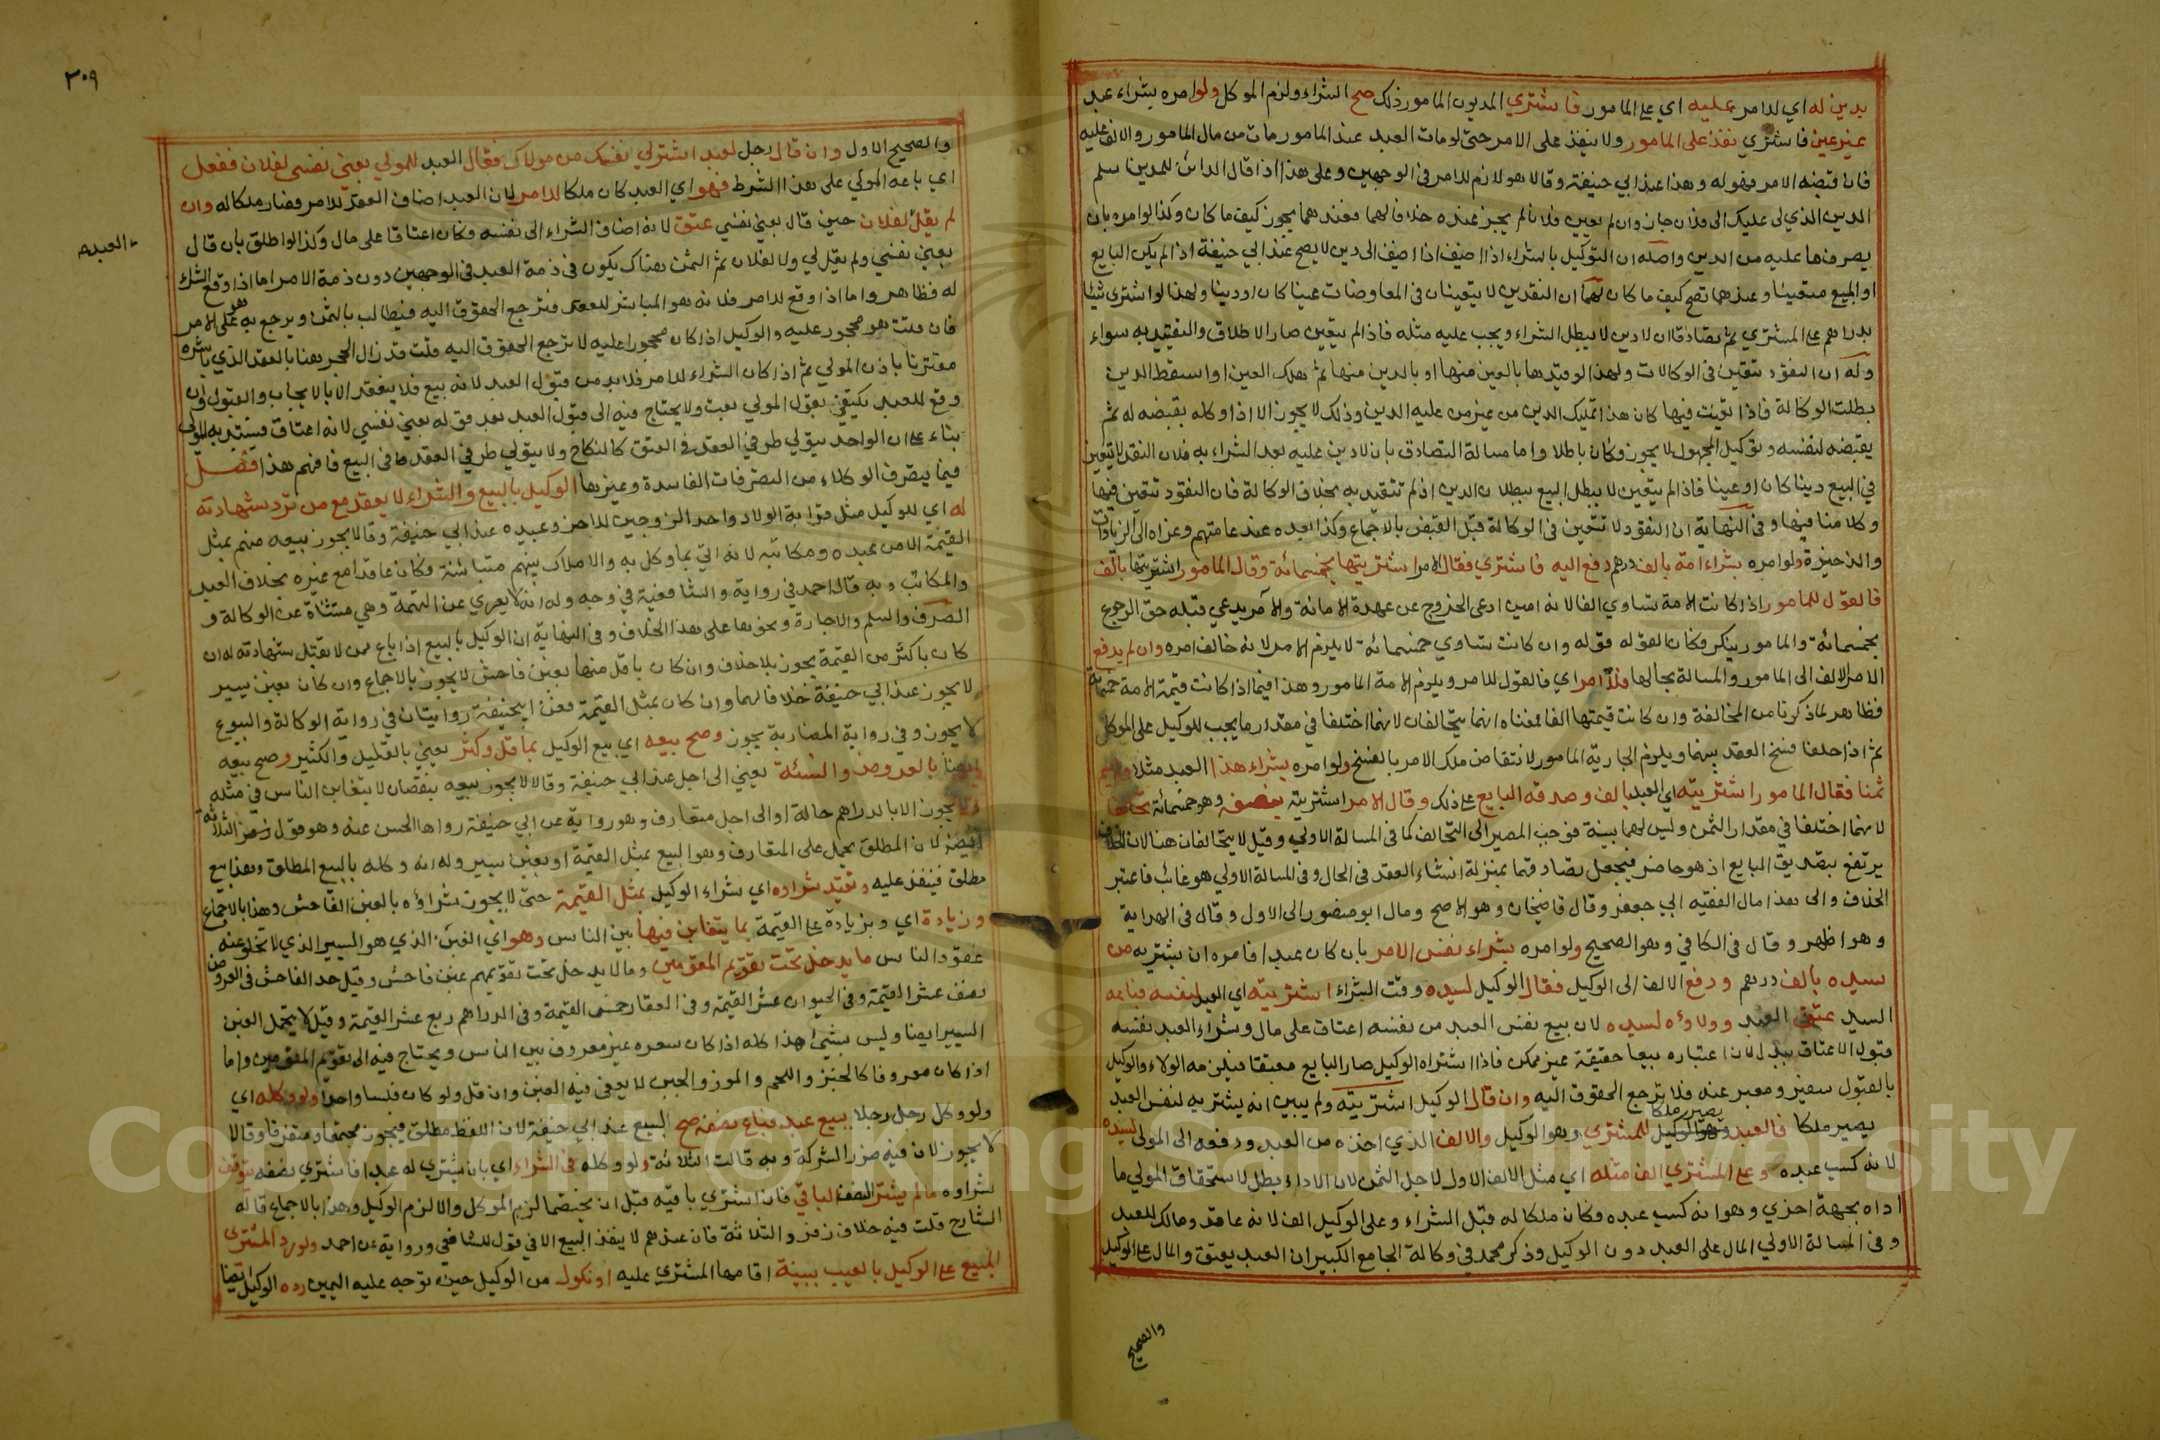 بدين له اي للامر عليه اي على المامور فاشتري المديون المامور ذلك صح الشراء ولزم الموكل ولو امره بشراء عبد
بغير عين فاشتري نفذ على المامور ولا ينفذ على الامر حتى لو مات العبد عند المامور مات من مال المامور والالف عليه
فان قبضه الامر فهو له وهذا عند ابي حنيفة وقالا هو لازم للامر في الوجهين وعلى هذا اذا قال الدائن للمدين سلم
الدين الذي لي عليك الى فلان جاز وان لم يعين فلانا لم يجز عنده خلافا لهما فعندهما يجوز كيف ما كان وكذا لو امره بان
يصرف ما عليه من الدين واصله ان التوكيل بالشراء اذا اضيف الى دين لا يصح عند ابي حنيفة اذا لم يكن البايع
او المبيع متعينا وعندهما تصح كيف ما كان لهما ان النقدين لا يتعينان في المعاوضات عينا كان او دينا ولهذا لو اشترى شيئا
بدراهم على المشتري ثم تصادقا ان لا دين لا يبطل الشراء ويجب عليه مثله فاذا لم يتعين صار الاطلاق والتقييد به سواء
وله ان النقود تتعين في الوكالات ولهذا لو قيدها بالعين منها او بالدين منها ثم هلك العين او اسقط الدين
بطلت الوكالة فاذا تعينت فيها كان هذا تمليك الدين من غير من عليه الدين وذلك لا يجوز الا اذا وكله بقبضه له ثم
يقبضه لنفسه وتوكيل المجهول لا يجوز فكان باطلا واما مسالة التصادق بان لا دين عليه بعد الشراء به فلان النقد لا يتعين
في البيع دينا كان او عينا فاذا لم يتعين لا يبطل البيع ببطلان الدين اذ لم تتقيد به بخلاف الوكالة فان النقود تتعين فيها
وكلامنا فيها وفي النهاية ان النقود لا تتعين في الوكالة قبل القبض بالاجماع وكذا بعده عند عامتهم وعزاه الى الزيادات
والذخيرة ولو امره بشراء امة بالف درهم دفع اليه فاشتري فقال الامر اشتريتها بخمسمائة وقال المامور اشتريتها بالف
فالقول للمامور اذا كانت الامة تساوي الفا لانه امين ادعى الخروج عن عهدة الامانة والآمر يدعي قبله حق الرجوع
بخمسمائة والمامور ينكر فكان القول قوله وان كانت تساوي خمسمائة لا يلزم الامر لانه خالف امره وان لم يدفع
الامر الالف الى المامور والمسالة بحالها فللآمر اي فالقول للامر ويلزم الامة المامور وهذا فيما اذا كانت قيمة الامة خمسمائة
فظاهر لما ذكرنا من المخالفة وان كانت قيمتها الفا فمعناه انهما يتحالفان لانهما اختلفا في مقدار ما يجب للوكيل على الموكل
ثم اذا حلفا فسخ العقد بينهما ويلزم الجارية المامور لانتقاض ملك الامر بالفسخ ولو امره بشراء هذا العبد مثلا
ثمنا فقال المامور اشتريته اي العبد بالف وصدقه البايع على ذلك وقال الامر اشتريته بنصفه وهو خمسمائة تحالفا
لانهما اختلفا في مقدار الثمن وليس لهما بينة فوجب المصير الى التحالف كما في المسالة الاولي وقيل لا يتحالفان هنا لان الخلاف
يرتفع بتصديق البايع اذ هو حاضر فيجعل تصادقهما بمنزلة انشاء العقد في الحال وفي المسالة الاولي هو غائب فاعتبر
الخلاف والى هذا مال الفقيه ابي جعفر وقال قاضيخان وهو الاصح ومال ابو منصور الى الاول وقال في الهداية
وهو اظهر وقال في الكافي وهو الصحيح ولو امره بشراء نفس الامر بان كان عبدا فامره ان يشتريه من
سيده بالف درهم ودفع الالف الى الوكيل فقال الوكيل لسيده وقت الشراء اشتريته اي العبد لنفسه فباعه
السيد عتق العبد وولاؤه لسيده لان بيع نفس العبد من نفسه اعتاق على مال وشراء العبد نفسه
قبول الاعتاق ببدل لان اعتباره بيعا حقيقة غير ممكن فاذا اشتراه الوكيل صار البايع معتقا فيلزمه الولاء والوكيل
بالقبول سفير ومعبر عنه فلا ترجع الحقوق اليه وان قال الوكيل اشتريته ولم يبين انه يشتريه لنفس العبد
يصير ملكا
يصير ملكا فالعبد وهو الوكيل للمشتري وهو الوكيل والالف الذي اخذه من العبد ودفعه الى المولى لسيده
لانه كسب عبده وعلى المشتري الف مثله اي مثل الالف الاول لاجل الثمن لان الاداء بطل لاستحقاق المولي ما
اداه بجهة اخري وهو انه كسب عبده فكان ملكا له قبل الشراء وعلى الوكيل الف لانه عاقد ومالك للعبد
وفي المسالة الاولي المال على العبد دون الوكيل وذكر محمد في وكالة الجامع الكبير ان العبد يعتق والمال على الوكيل
والصحيح
٣٠٩
والصحيح الاول وان قال رجل لعبد اشتر لي نفسك من مولاك فقال العبد للمولي بعني نفسي لفلان ففعل
اي باعه المولي على هذا الشرط فهو اي العبد كان ملكا للامر لان العبد اضاف العقد للامر فصار ملكا له وان
لم يقل لفلان حين قال بعني نفسي عتق لانه اضاف الشراء الى نفسه فكان اعتاقا على مال وكذا لو اطلق بان قال
العبد
بعني نفسي ولم يقل لي ولا لفلان ثم الثمن هناك يكون في ذمة العبد في الوجهين دون ذمة الامر اما اذا وقع الشراء
له فظاهر واما اذا وقع للامر فلانه هو المباشر للعقد فترجع الحقوق اليه فيطالب بالثمن ويرجع به على الامر
فان قلت هو محجور عليه والوكيل اذا كان محجورا عليه لا ترجع الحقوق اليه قلت قد زال الحجر هنا بالعقد الذي باشره
مقترنا باذن المولي ثم اذا كان الشراء للامر فلا بد من قبول العبد لانه بيع فلا ينعقد الا بالايجاب والقبول وان
وقع للعبد يكتفي بقول المولي بعت ولا يحتاج فيه الى قبول العبد بعد قوله بعني نفسي لانه اعتاق فيستبد به المولى
بناء على ان الواحد يتولي طرفي العقد في العتق كالنكاح ولا يتولي طرفي العقد في البيع فافهم هذا فصل
فيما يتصرف الوكلاء من التصرفات الفاسدة وغيرها الوكيل بالبيع والشراء لا يعقد مع من ترد شهادته
له اي للوكيل مثل قرابة الولاد واحد الزوجين للاخر وعبيده عند ابي حنيفة وقالا يجوز بيعه منهم بمثل
القيمة الا من عبده ومكاتبه لانه اتى بما وكل به والاملاك بينهم متباينة فكان عاقدا مع غيره بخلاف العبد
والمكاتب وبه قال احمد في رواية والشافعية في وجه وله انه لا يعري عن التهمة وهي مستثناة عن الوكالة و
الصرف والسلم والاجارة ونحوها على هذا الخلاف وفي النهاية ان الوكيل بالبيع اذا باع ممن لا تقبل شهادته له ان
كان باكثر من القيمة يجوز بلا خلاف وان كان باقل منها بغبن فاحش لا يجوز بالاجماع وان كان بغبن يسير
لا يجوز عند ابي حنيفة خلافا لهما وان كان بمثل القيمة فعن ابيحنيفة روايتان في رواية الوكالة والبيوع
لا يجوز وفي رواية المضاربة يجوز وصح بيعه اي بيع الوكيل بما قل وكثر يعني بالقليل والكثير وصح بيعه
ايضا بالعروض والنسئة يعني الى اجل عند ابي حنيفة وقالا لا يجوز بيعه بنقصان لا يتغابن الناس في مثله
ولا يجوز الا بالدراهم حالة او الى اجل متعارف وهو رواية عن ابي حنيفة رواها الحسن عنه وهو قول زفر والثلاثة
ايضا لان المطلق يحمل على المتعارف وهو البيع بمثل القيمة او بغبن يسير وله انه وكله بالبيع المطلق وهذا بيع
مطلق فينفذ عليه وتقيد شراؤه اي شراء الوكيل بمثل القيمة حتى لا يجوز شراؤه بالغبن الفاحش وهذا بالاجماع
وزيادة اي وبزيادة على القيمة بما يتغابن فيها بين الناس وهو اي الغبن الذي هو اليسير الذي لا تخلو عنه
عقود الناس ما يدخل تحت تقويم المقومين وما لا يدخل تحت تقويمهم غبن فاحش وقيل حد الفاحش في العروض
نصف عشر القيمة وفي الحيوان عشر القيمة وفي العقار خمس القيمة وفي الدراهم ربع عشر القيمة وقيل لا يتحمل الغبن
اليسير ايضا وليس بشئ هذا كله اذا كان سعره غير معروف بين الناس ويحتاج فيه الى تقويم المقومين واما
اذا كان معروفا كالخبز واللحم والموز والجبن لا يعفى فيه الغبن وان قل ولو كان فلسا واحدا ولو وكله اي
ولو وكل رجل رجلا ببيع عبد فباع نصفه صح البيع عند ابي حنيفة لان اللفظ مطلق فيجوز مجتمعا ومتفرقا وقالا
لا يجوز لان فيه ضرر الشركة وبه قالت الثلاثة ولو وكله في الشراء اي بان يشتري له عبدا فاشتري نصفه توقف
شراؤه ما لم يشتر النصف الباقي فان اشتري باقيه قبل ان يختصما لزم الموكل والا لزم الوكيل وهذا بالاجماع قاله
الشارح قلت فيه خلاف زفر والثلاثة فان عندهم لا ينفذ البيع الا في قول للشافعي ورواية عن احمد ولو رد المشترى
المبيع على الوكيل بالعيب ببينة اقامها المشتري عليه او نكول من الوكيل حين توجه عليه اليمين رده الوكيل ايضا
Copyright © King Saud University